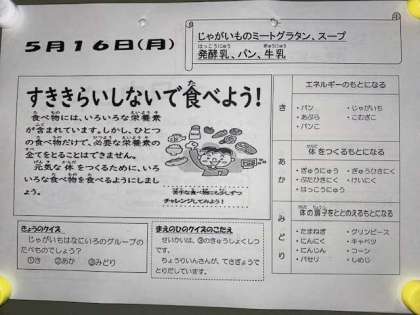 5月16日(月)
じゃがいものミートグラタン、スープ
はっこうにゅう ぎゅうにゅう
発酵乳、パン、牛乳
すききらいしないで食べよう!
食べ物には、いろいろな栄養素
が含まれています。しかし、ひとつ
の食べ物だけで、必要な栄養素の
全てをとることはできません。
元気な体をつくるために、いろ
いろな食べ物を食べるようにしましょ
う。
苦手な食べ物にも少しずつ
チャレンジしてみよう!
き
エネルギーのもとになる
・パン ・じゃがいも
・あぶら ・こむぎこ
・パンこ
あか
体をつくるもとになる
・ぎゅうにゅう ・ぎゅうひきにく
・ぶたひきにく ・けいにく
・はっこうにゅう
みどり
体の調子をととのえるもとになる
・たまねぎ ・グリンピース
・にんにく ・キャベツ
・にんじん ・コーン
・パセリ ・しめじ
きょうのクイズ
じゃがいもはなにいろのグループの
たべものでしょう?
①き ②あか ③みどり
まえのひのクイズのこたえ
せいかいは、③のきゅうしょくしつ
です。
ちょうりいんさんが、てきぎょうで
とりだしています。